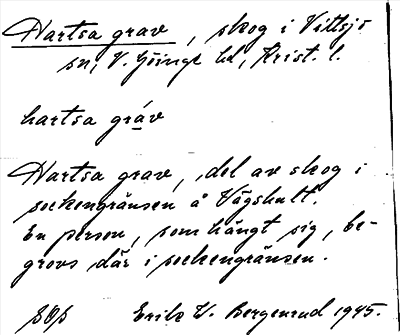 Hartsa grav, skog i Vittsjö
sn, V. Göinge hd, Krist. l.
hartsa gráv
Hartsa grav, del av skog i
sockengränsen å Vägshult.
En person, som hängt sig, be-
grovs där i sockengränsen.
Erik W. Bergenrud 1945.